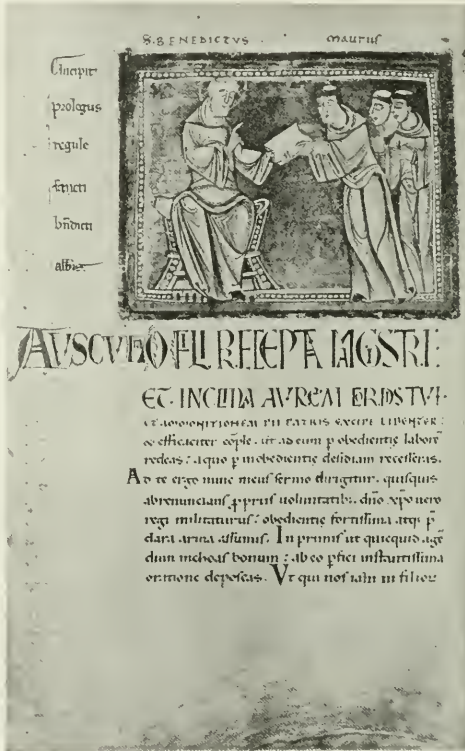 S. BENEDICTVS MAURUS
Incipit
prologus
regule
sancti
bndicti
abbis
AUSCULTA O FILI P̄CEPTA MAGISTRI
ET INCLINA AVREM CORDIS TVI.
ET AMMONITIONEM PII PATRIS EXCIPE LIBENTER:
⁊ efficaciter cōple. ut ad eum p obedientię laborē
redeas: a quo p inobedientię desidiam recesseras.
Ad te ergo nunc meus sermo dirigitur. quisquis
abrenuncians ꝓpriis uoluntatib; dño xp̄o uero
regi militaturus: obedientię fortissima atq; p̄
clara arma assumis. In primis ut quicquid agē
dum inchoas bonum: ab eo ꝑfici instantissima
oratione deposcas. Vt qui nos iam in filioꝝ